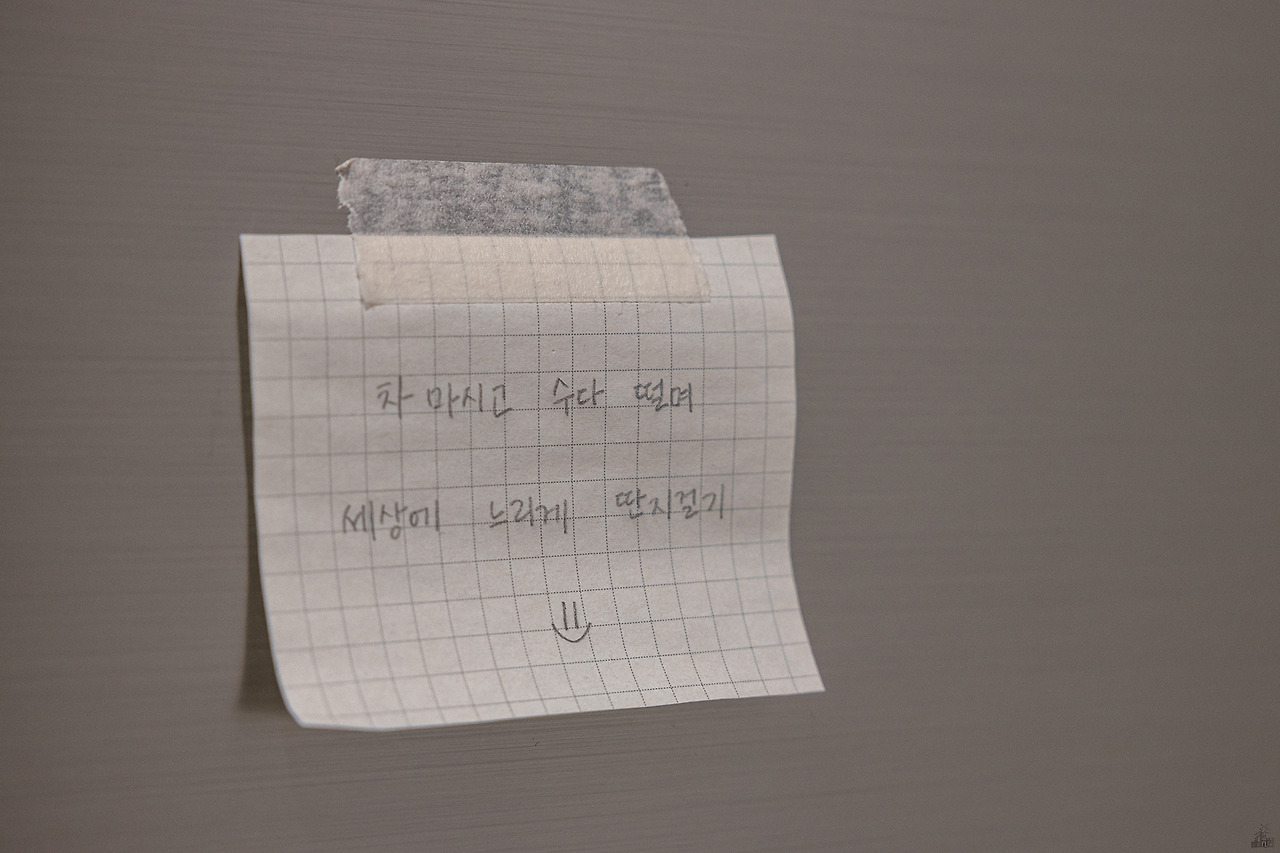 차 마시고 수다 떨며
세상에 느리게 딴지걸기